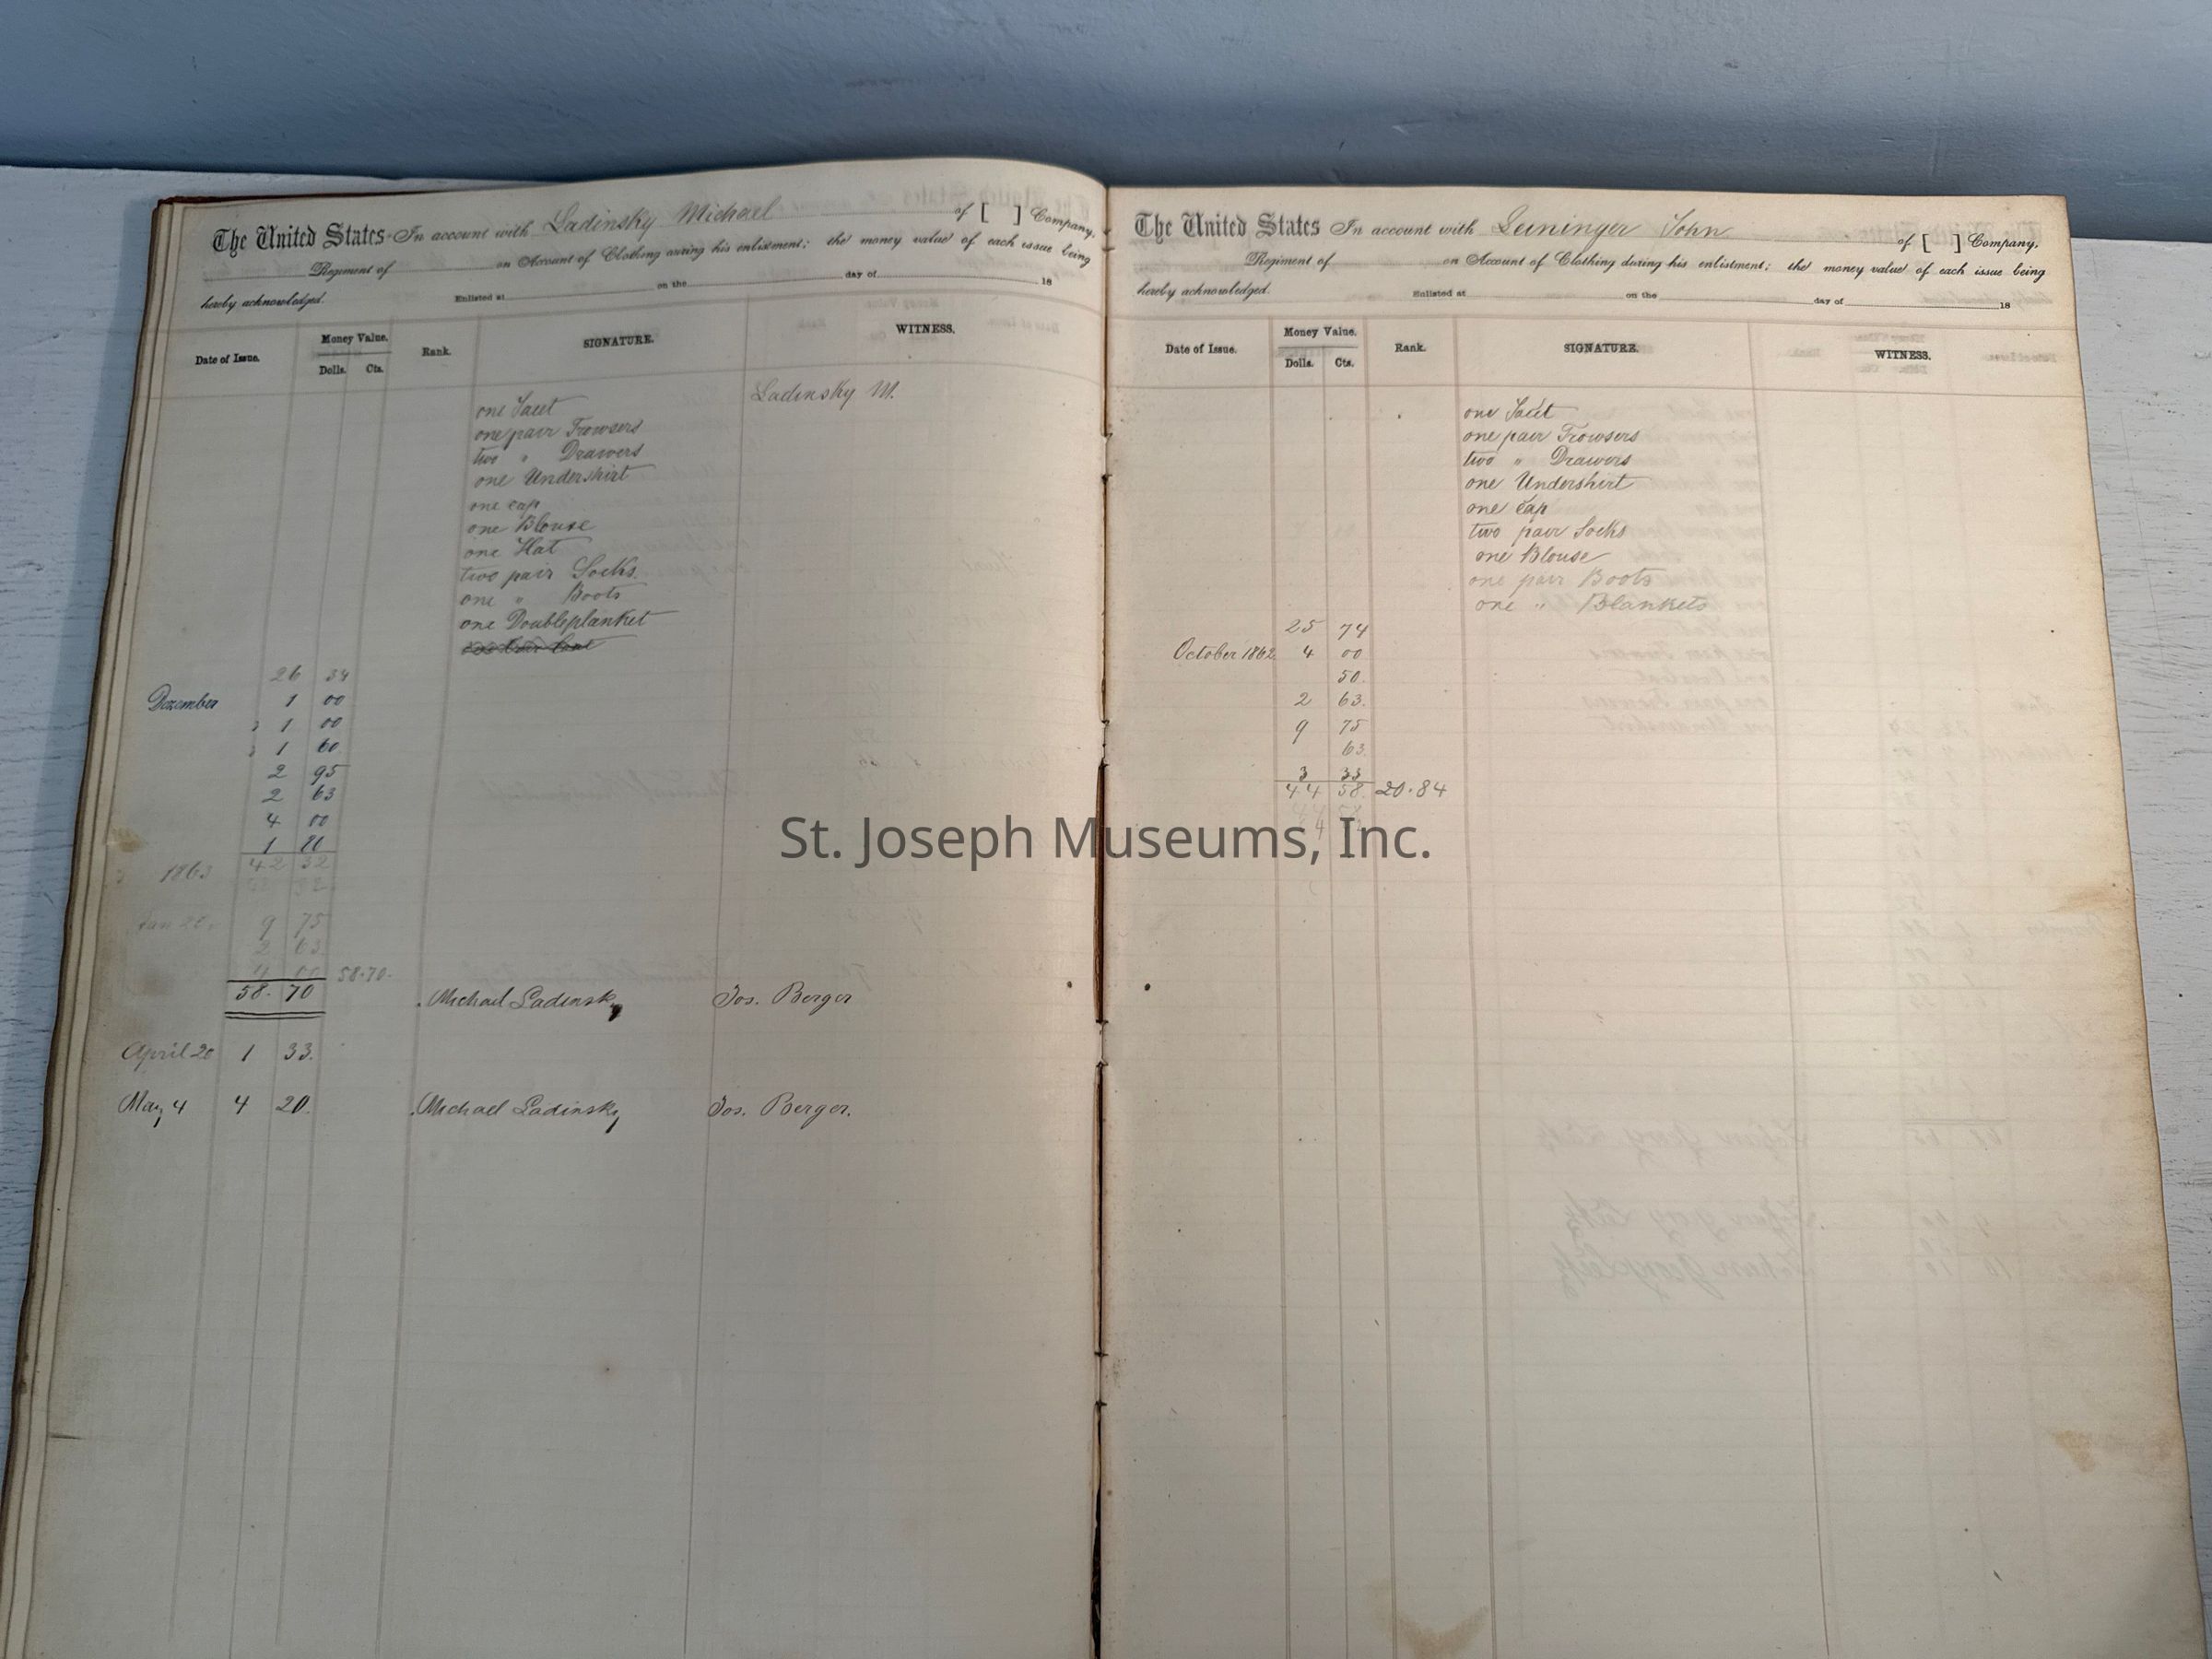 The United States In account with Ladinsky Michael of [ ] Company,
Regiment of on Account of Clothing during his enlistment; the money value of each issue being
hereby acknowledged. Enlisted at on the day of 18
Date of Issue. Money Value. Rank. SIGNATURE. WITNESS.
Dolls. Cts.
Ladinsky M.
one Jacet
one pair Trowsers
two " Drawers
one Undershirt
one cap
one Blouse
one Hat
two pair Socks.
one " Boots
one Doubleplanket
26 34
Dezember 1 00
" 1 00
" 1 60
2 95
2 63
4 00
1 80
42 32
1863
Jan 20. 9 75
2 63
4 00 58.70.
58. 70 Michael Ladinsky Jos. Berger
April 20 1 33.
May 4 4 20. Michael Ladinsky Jos. Berger.
The United States In account with Leininger John of [ ] Company,
Regiment of on Account of Clothing during his enlistment; the money value of each issue being
hereby acknowledged. Enlisted at on the day of 18
Date of Issue. Money Value. Rank. SIGNATURE. WITNESS.
Dolls. Cts.
one Jacet
one pair Trowsers
two " Drawers
one Undershirt
one Cap
two pair Socks
one Blouse
one pair Boots
one " Blankets
25 74
October 1862 4 00
50.
2 63.
9 75
63.
3 33
44 58. 20.84
St. Joseph Museums, Inc.